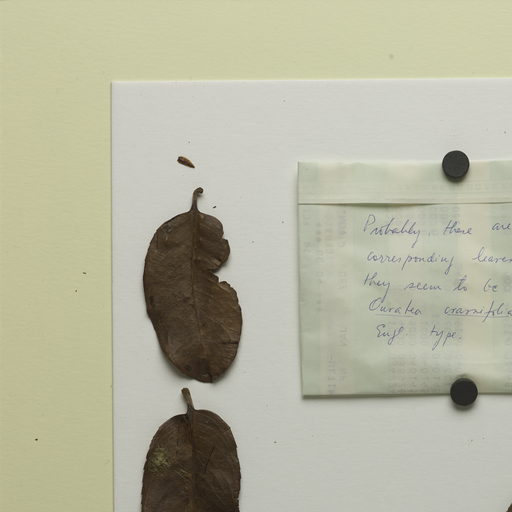 Probably these are
corresponding leaves
they seem to be
Ouratea crassifolia
Engl. type.